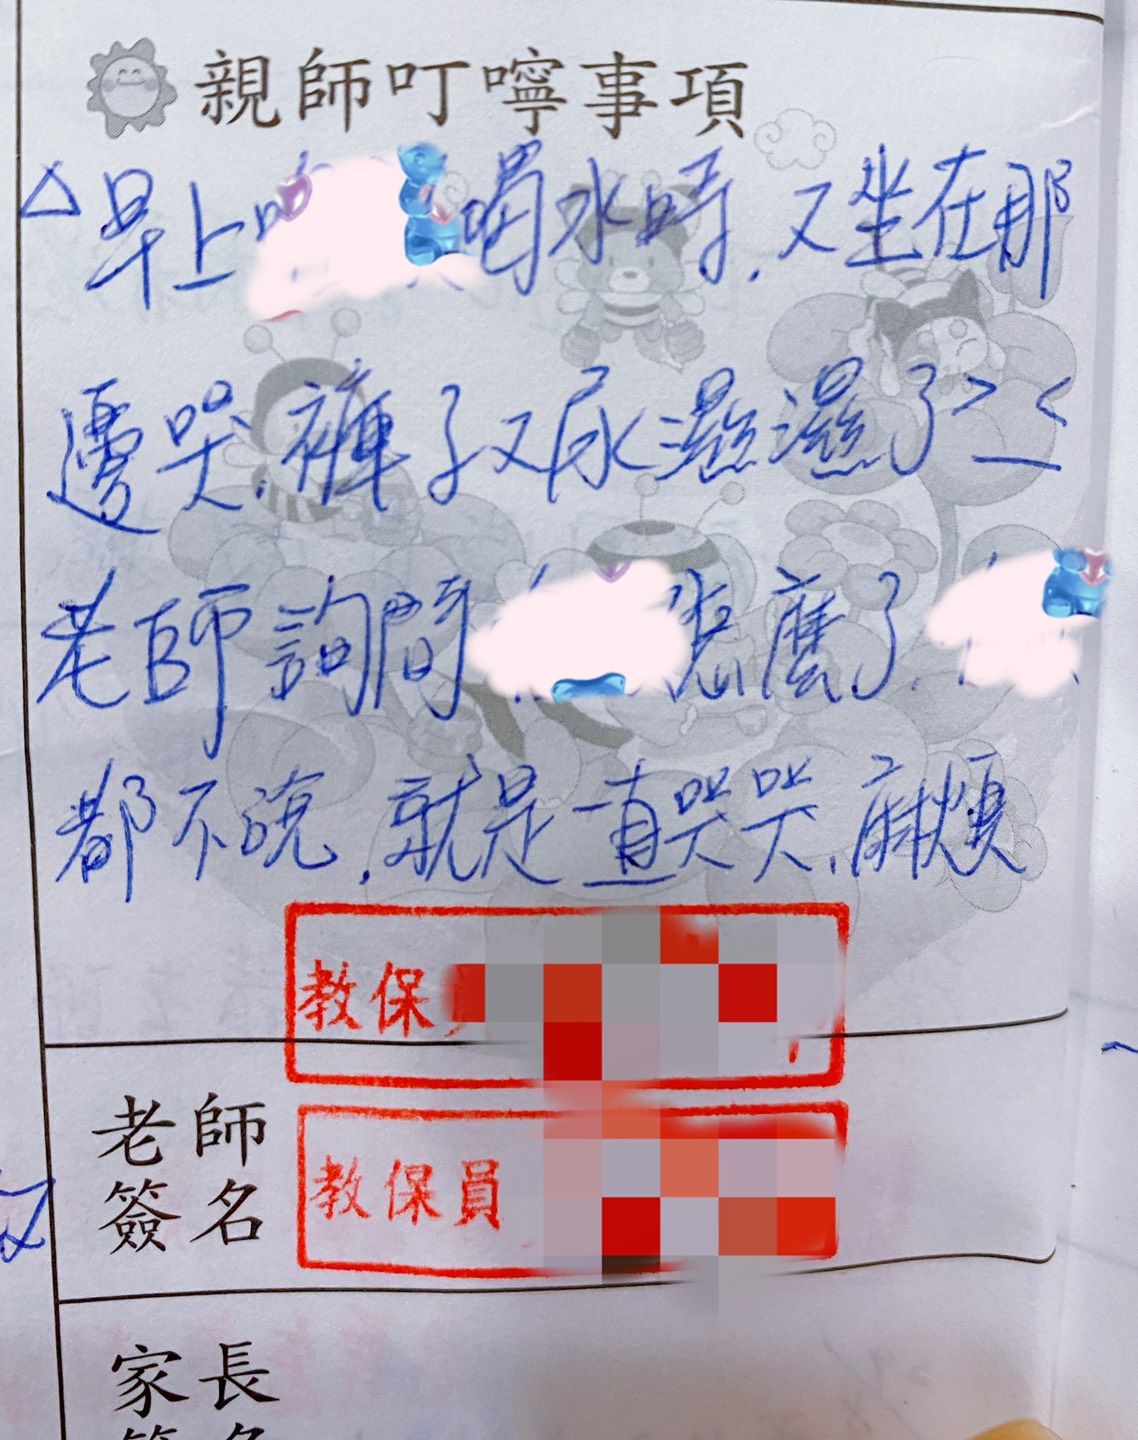 親師叮嚀事項
△早上 喝水時,又坐在那
邊哭,褲子又尿濕濕了>_<
老師詢問 怎麼了,
都不說,就是一直哭哭,麻煩
教保
老師
簽名
教保員
家長